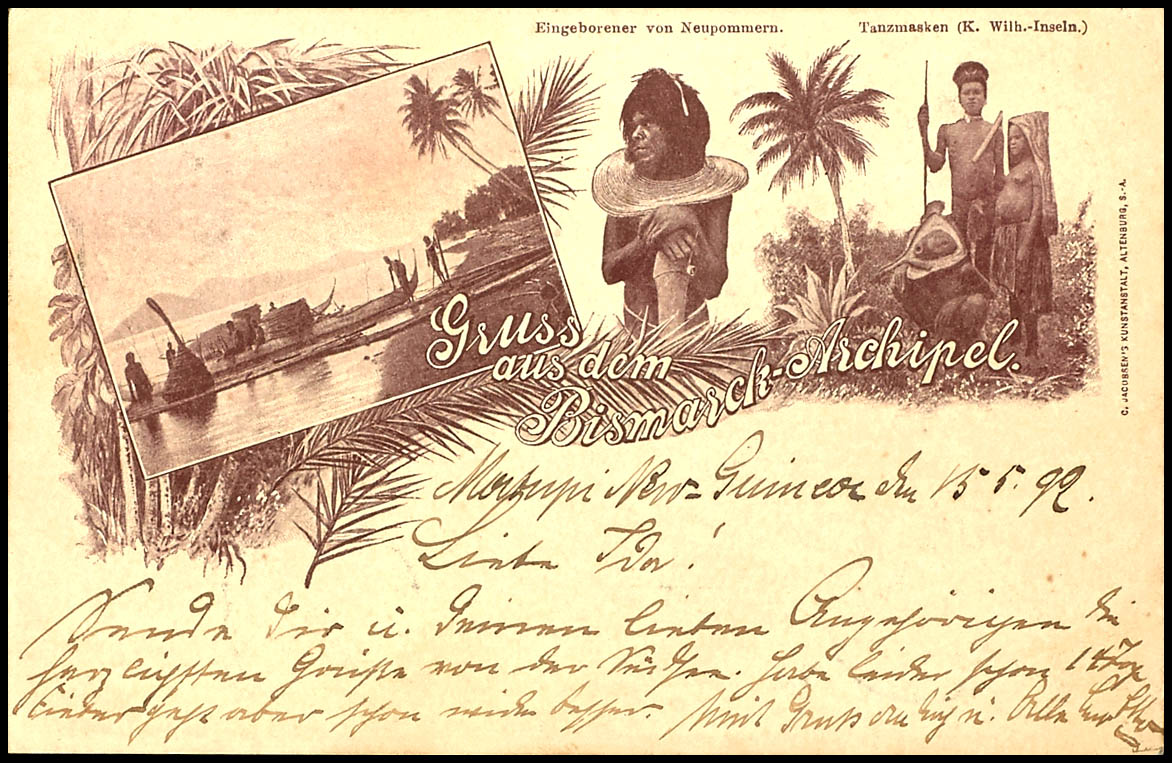 Eingeborener von Neupommern.
Tanzmasken (K. Wilh.-Inseln.)
C. JACOBSEN'S KUNSTANSTALT, ALTENBURG, S.-A.
Gruss
aus dem
Bismarck-Archipel.
Matupi New-Guinea den 15 5. 99.
Liebe Ida!
Sende Dir u. Deinen lieben Angehörigen die
herzlichsten Grüße von der Südsee. Habe leider schon 14 Tage
Fieber geht aber schon wieder besser. Mit Gruß an Dich u. Alle